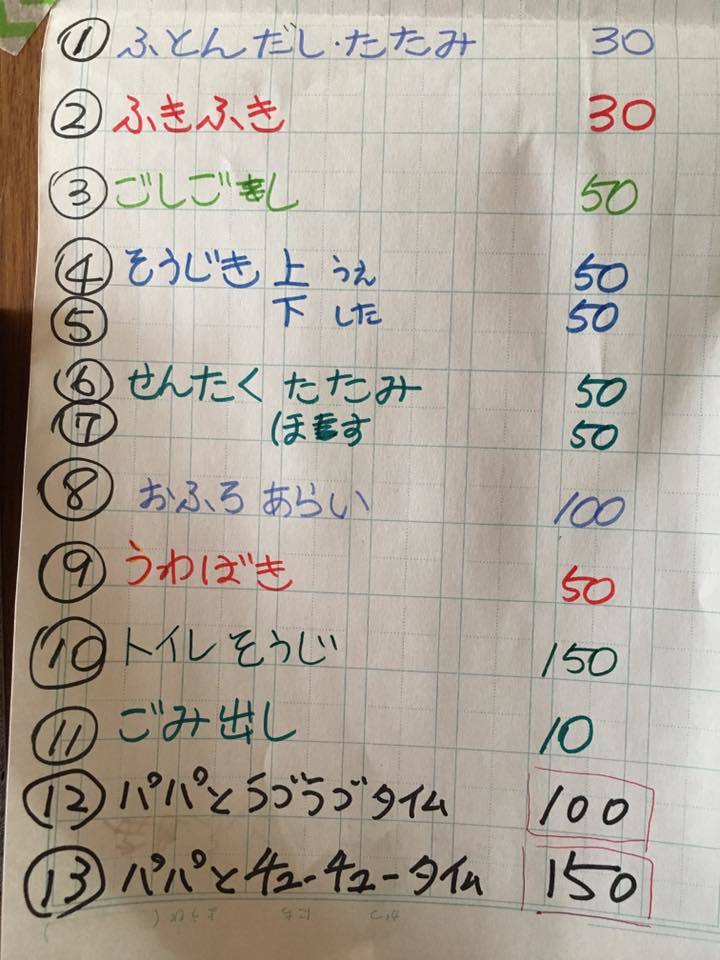 ① ふとんだし・たたみ 30
② ふきふき 30
③ ごしごし 50
④ そうじき 上 うえ 50
⑤ 下 した 50
⑥ せんたく たたみ 50
⑦ ほす 50
⑧ おふろ あらい 100
⑨ うわばき 50
⑩ トイレ そうじ 150
⑪ ごみ出し 10
⑫ パパとラブラブタイム 100
⑬ パパとチューチュータイム 150